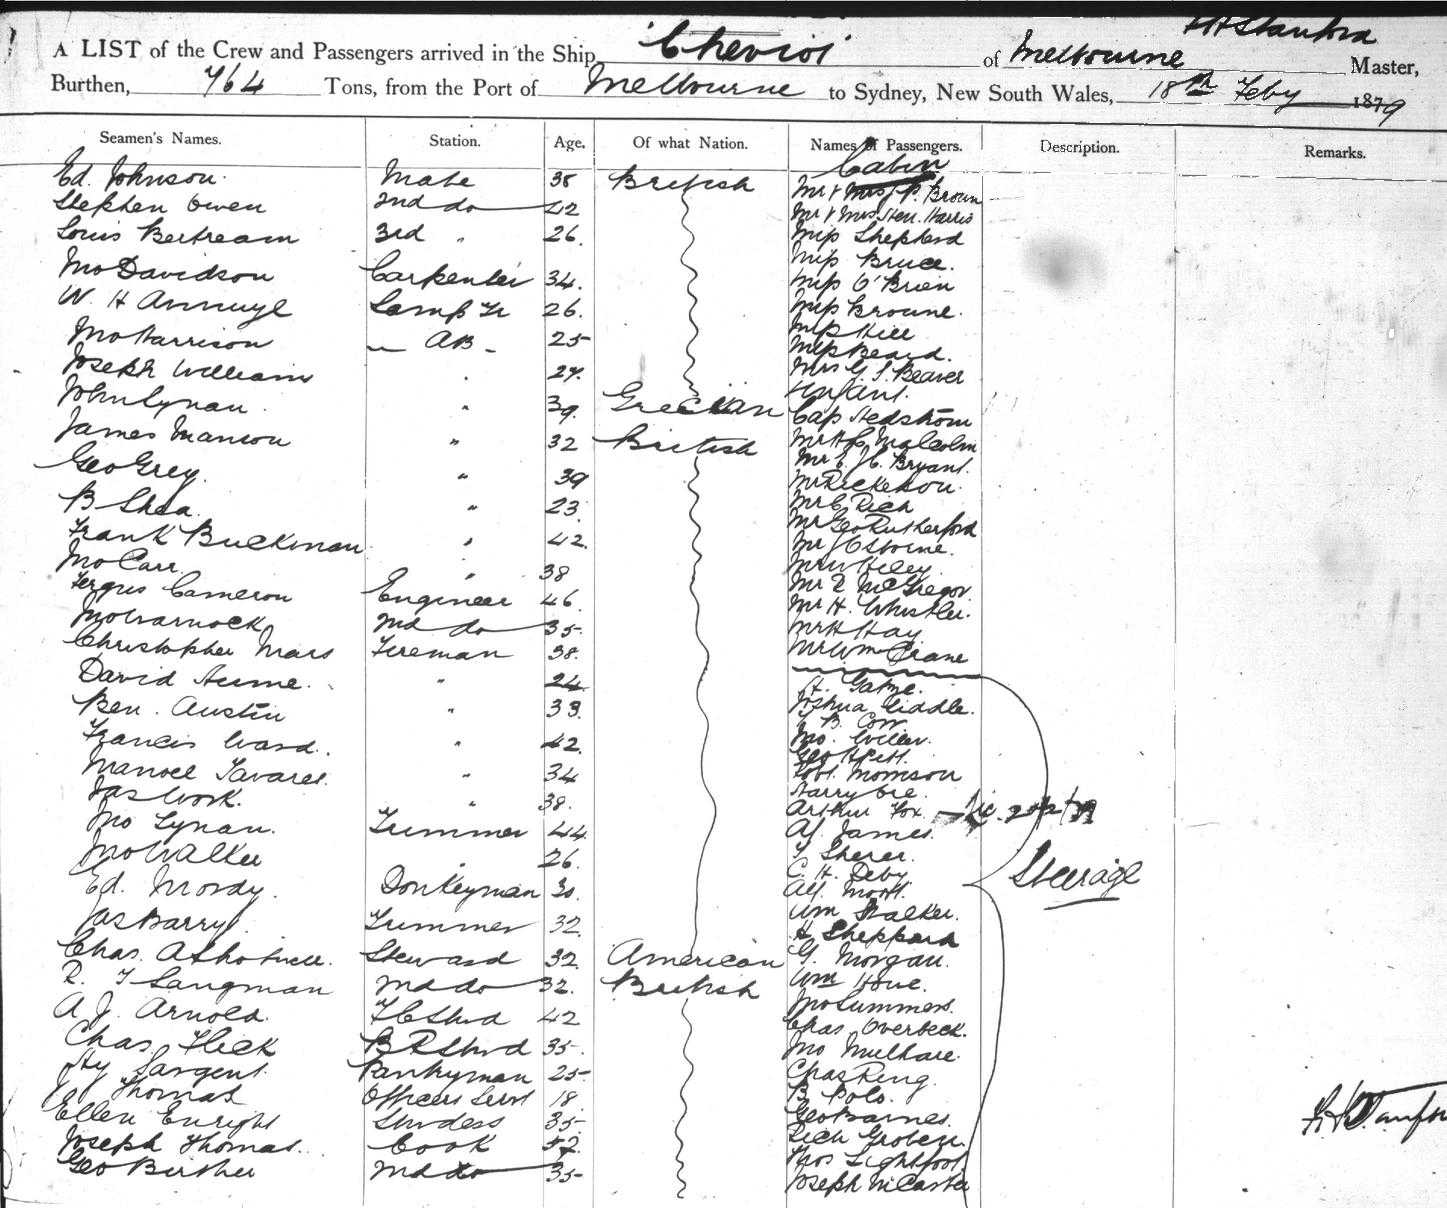 H H Stanford
A LIST of the Crew and Passengers arrived in the Ship "Cheviot" of Melbourne Master,
Burthen, 764 Tons, from the Port of Melbourne to Sydney, New South Wales, 18th Feby 1879
Seamen's Names. Station. Age. Of what Nation. Names of Passengers. Description. Remarks.
Cabin
Ed. Johnson. Mate 38 British Mr & Mrs J. P. Broun
Stephen Owen 2nd do 42 Mr & Mrs Hen. Harris
Louis Bertream 3rd " 26. Miss Shepherd
Miss Bruce.
Jno Davidson Carpenter 34. Miss O'Brien
W. H Lamp Tr 26. Miss Browne.
Miss Hill
Jno Harrison AB 25 Miss Beard.
Joseph William " 27. Mrs G. S. Beaver
Infant.
John Lynan " 39 Grecian Cap Hedstrom
James Manson " 32 British Mr H. C. Malcolm
Mr E. J. C. Bryant.
Geo Grey. " 39 Mr Ricketson.
B Shea. " 23. Mr C Rich
Mr Geo Rutherford
Frank Buckman " 42. Mr J Osborne.
Jno Carr. " 38 Mr W Hiley.
Fergus Cameron Engineer 46. Mr D McGregor.
Mr H. Whistler.
Jno Warnock 2nd do 35 Mr H Hay
Christopher Mars Fireman 38. Mr Wm Crane
David Hume. " 24
Joshua Liddle.
Ben. Austin " 33. T B. Corr
Francis Ward. " 42. Jno.
Manoel Tavares. " 34 Robt. Morrison
Jas Work. " 38. Harry
Arthur Fox
Jno Lynan. Trimmer 44. A J James.
Jno Walker " 26. T Sherer.
C. H. Deby Steerage
Ed. Mordy. Donkeyman 30. Alf. Moott.
Wm Stalker.
Jas Barry Trimmer 32. H Sheppard
Chas. Steward 32. American G. Morgan.
R. T Langman 2nd do 32. British Wm Howe.
A. J. Arnold. F C Stwd 42 Jno Summers.
Chas Overbeck.
Chas. Flick B R Stwd 35. Jno Mulhare.
Hy Sargent. Pantryman 25 Chas Ring.
Thomas Officers Servt 18 B Polo.
Ellen Enright Stwdess 35 Geo Barnes.
Joseph Thomas. Cook 52. Rich
Thos Lightfoot
Geo Birther 2nd do 35 Joseph McCarter